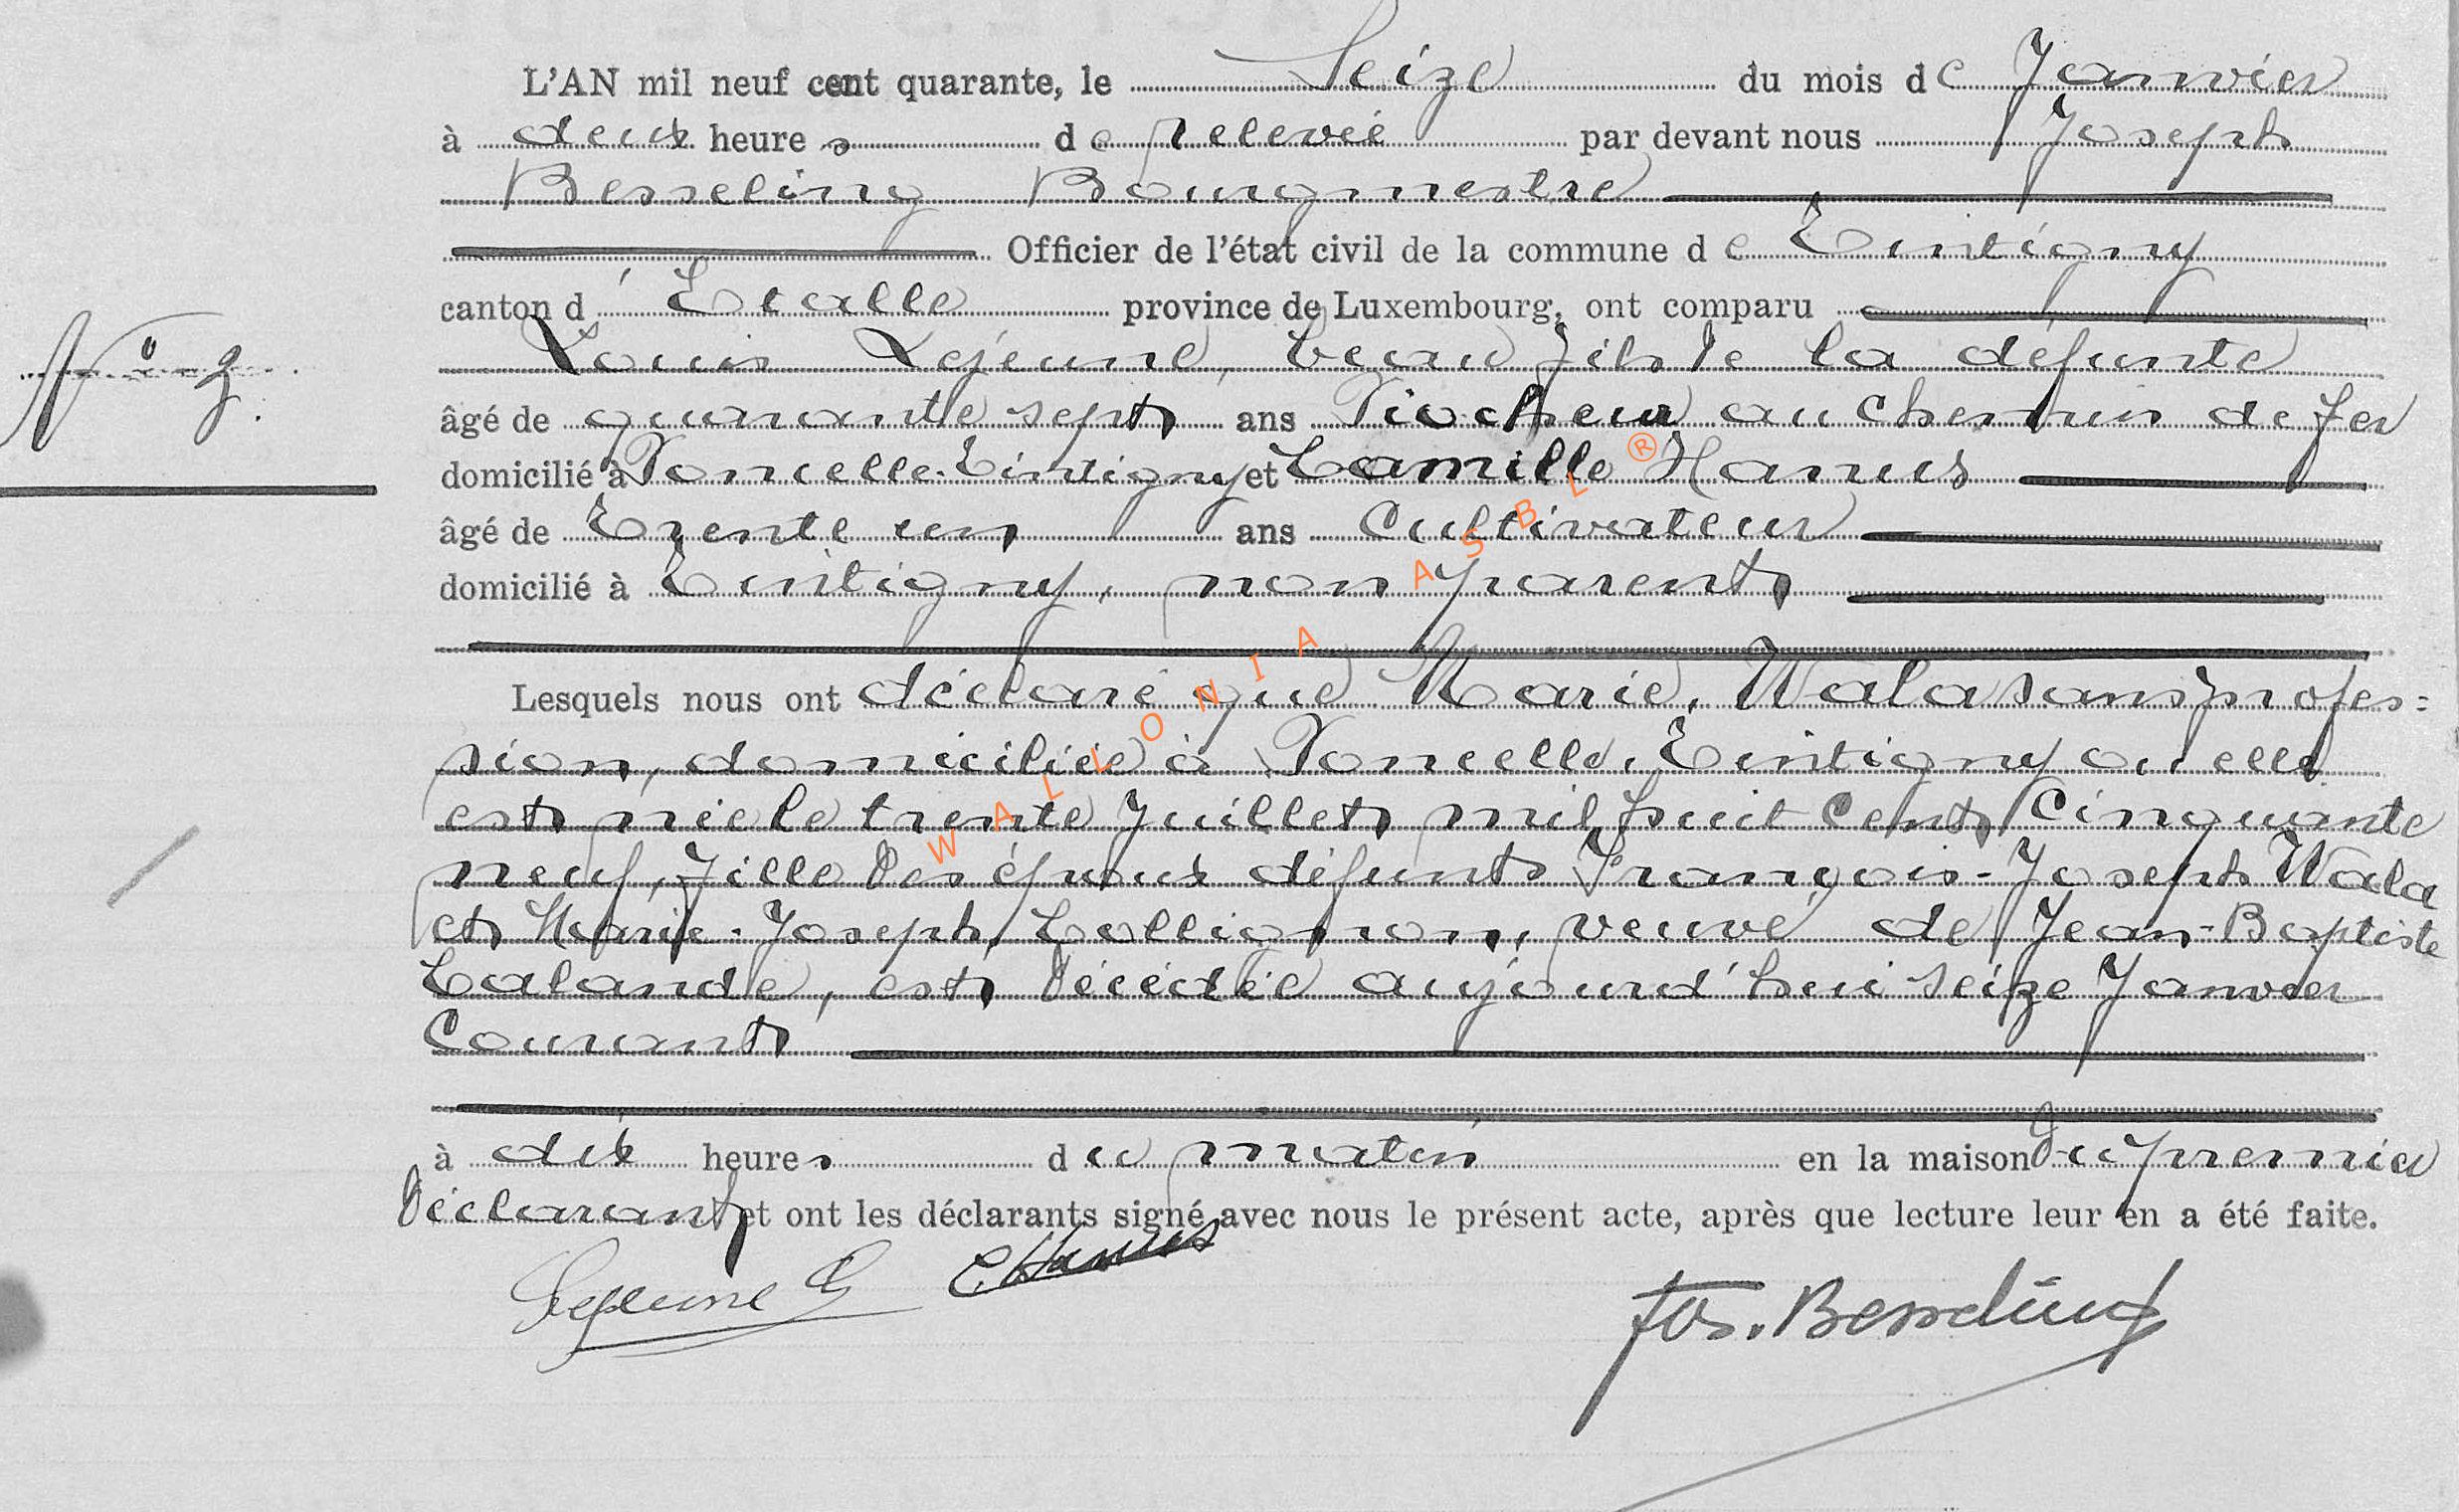 L'AN mil neuf cent quarante, le Seize du mois de Janvier
à deux heures de relevée par devant nous Joseph
Besseling Bourgmestre
Officier de l'état civil de la commune de Tintigny
canton d'Etalle province de Luxembourg, ont comparu
Louis Lejeune, beau fils de la défunte
N° 3.
âgé de quarante sept ans Piocheur au chemin de fer
domicilié à Poncelle-Tintigny et Camille Hanus
âgé de Trente un ans Cultivateur
domicilié à Tintigny, non parent
Lesquels nous ont déclaré que Marie, Wala sans profes=
sion, domiciliée à Poncelle, Tintigny où elle
est née le trente Juillet mil huit Cent Cinquante
neuf, fille des époux défunts François-Joseph Wala
et Marie-Joseph, Collignon, veuve de Jean-Baptiste
Lalande, est décédée aujourd'hui seize Janvier
Courant
à dix heures du matin en la maison du premier
déclarant et ont les déclarants signé avec nous le présent acte, après que lecture leur en a été faite.
Lejeune L CHanus
Jos. Besseling
WALLONIA ASBL ®